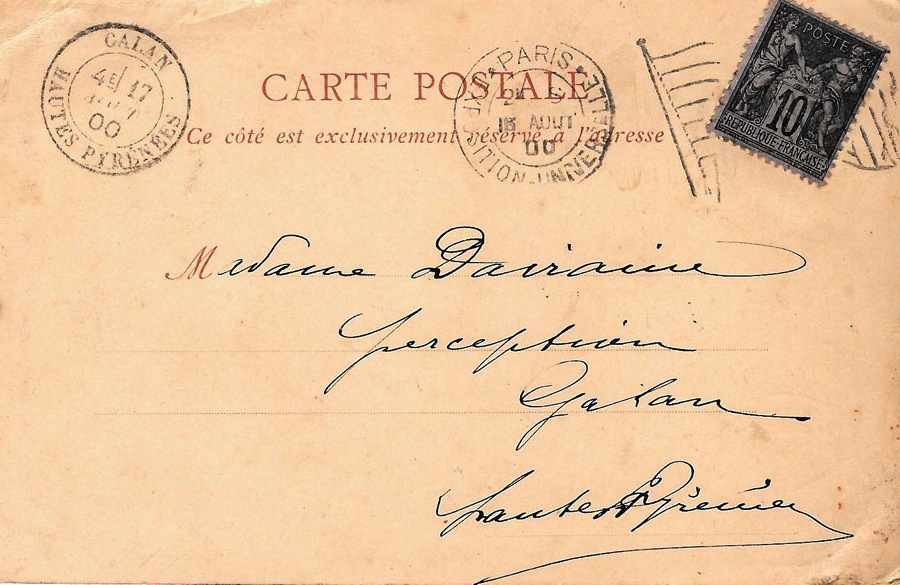 GALAN
4E 17
AOUT
00
HAUTES PYRÉNÉES
PARIS
EXPOSITION UNIVERSELLE
16 AOUT
00
POSTE
10
REPUBLIQUE FRANÇAISE
CARTE POSTALE
Ce côté est exclusivement réservé à l'adresse
Madame Daviraine
perception
Galan
hautes Pyrénées